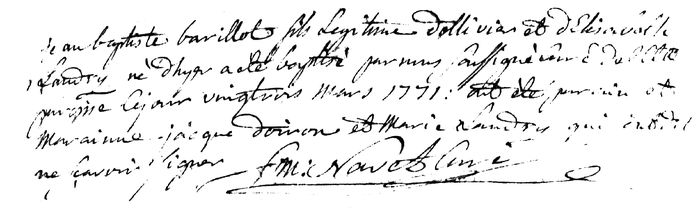 Jean baptiste barillot fils Legitime dollivier et d'Elisabeth
Landry né dhyer a eté baptisé par nous soussigné curé de cette
parroisse Cejour vingtrois mars 1771: ont été parain et
Marainne jacque doiron et Marie Landry qui ont dit
ne sçavoir signer